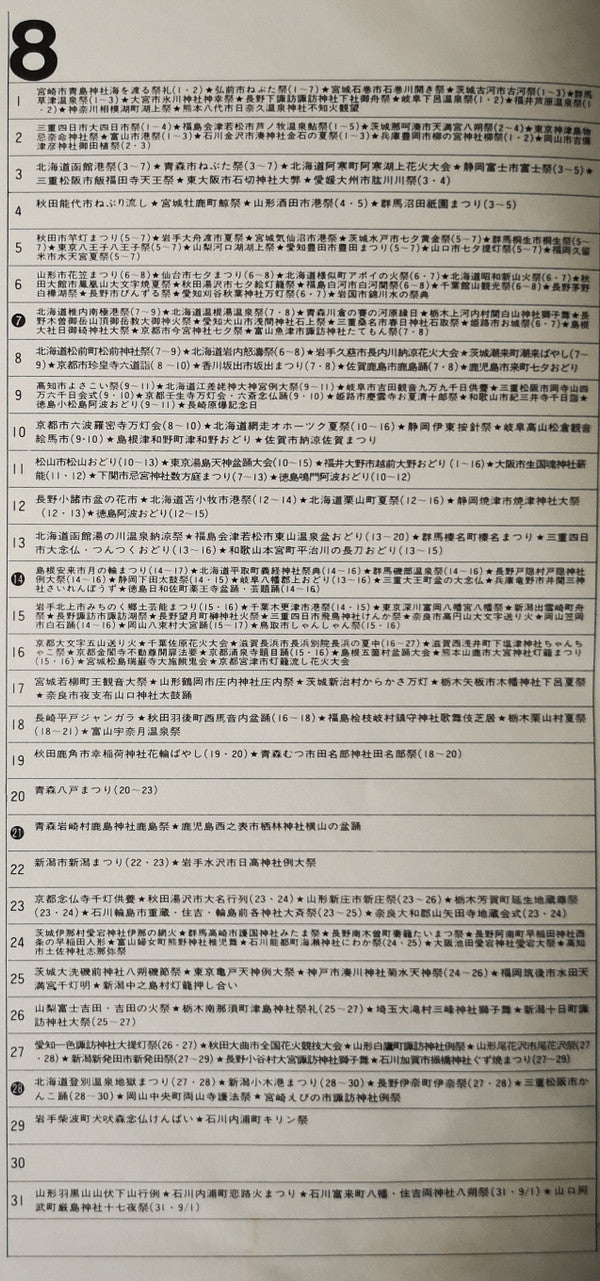 8
1 宮崎市青島神社海を渡る祭礼(1・2)★弘前市ねぷた祭(1~7)★宮城石巻市石巻川開き祭★茨城古河市古河祭(1~3)★群馬
草津温泉祭(1~3)★大宮市氷川神社神幸祭★長野下諏訪諏訪神社下社御舟祭★岐阜下呂温泉祭(1・2)★福井芦原温泉祭(1
・2)★神奈川相模湖町湖上祭★熊本八代市日奈久温泉神社不知火観望
2 三重四日市大四日市祭(1~4)★福島会津若松市芦ノ牧温泉鮎祭(1~5)★茨城那珂湊市天満宮八朔祭(2~4)★東京神津島物
忌奈命神社祭★富山市港祭(1~3)★石川金沢市湊神社金石の夏祭(1~3)★兵庫豊岡市柳の宮神社柳祭(1・2)★岡山市吉備
津彦神社御田植祭(2・3)
3 北海道函館港祭(3~7)★青森市ねぶた祭(3~7)★北海道阿寒町阿寒湖上花火大会★静岡富士市富士祭(3~5)★
三重松阪市飯福田寺天王祭★東大阪市石切神社大弊★愛媛大州市肱川川祭(3・4)
4 秋田能代市ねぶり流し★宮城牡鹿町鯨祭★山形酒田市港祭(4・5)★群馬沼田祇園まつり(3~5)
5 秋田市竿灯まつり(5~7)★岩手大船渡市夏祭★宮城気仙沼市港祭★茨城水戸市七夕黄金祭(5~7)★群馬桐生市桐生祭(5~
7)★東京八王子八王子祭(5~7)★山梨河口湖湖上祭★愛知豊田市豊田まつり(5~7)★山口市七夕提灯祭(5~7)★福岡久留
米市水天宮夏祭(5~7)
6 山形市花笠まつり(6~8)★仙台市七夕まつり(6~8)★北海道様似町アポイの火祭(6・7)★北海道昭和新山火祭(6・7)★秋
田大館市鳳凰山大文字焼夏祭★秋田湯沢市七夕絵灯籠祭★福島白河市白河関祭(6~8)★千葉館山観光祭(6~8)★長野茅野
白樺湖祭★長野市びんずる祭★愛知刈谷秋葉神社万燈祭(6・7)★岩国市錦川水の祭典
7 北海道稚内南極港祭(7~9)★北海道温根湯温泉祭(7・8)★青森川倉の賽の河原縁日★栃木上河内村関白山神社獅子舞★長
野木曽御岳山頂御岳教大御神火祭★愛知犬山市浅間神社石上祭★三重桑名市春日神社石取祭★姫路市お城祭(6・7)★島根
大社日御碕神社大祭★京都市今宮神社七夕祭★富山魚津市諏訪神社たてもん祭(7・8)
8 北海道松前町松前神社祭(7~9)★北海道岩内怒濤祭(6~8)★岩手久慈市長内川納涼花火大会★茨城潮来町潮来ばやし(7~
9)★京都市珍皇寺六道詣(8~10)★香川坂出市坂出まつり(7・8)★佐賀鹿島市鹿島踊(7・8)★鹿児島市来町七夕おどり
9 高知市よさこい祭(9~11)★北海道江差姥神大神宮例大祭(9~11)★岐阜市吉田観音九万九千日供養★三重松阪市岡寺山四
万六千日会式(9・10)★京都壬生寺万燈会・六斎念仏踊(9・10)★姫路市慶雲寺お夏清十郎祭★和歌山市紀三井寺千日詣★
徳島小松島阿波おどり(9~11)★長崎原爆記念日
10 京都市六波羅密寺万灯会(8~10)★北海道網走オホーツク夏祭(10~16)★静岡伊東按針祭★岐阜高山松倉観音
絵馬市(9・10)★島根津和野町津和野おどり★佐賀市納涼佐賀まつり
11 松山市松山おどり(10~13)★東京湯島天神盆踊大会(10~15)★福井大野市越前大野おどり(1~16)★大阪市生国魂神社薪
能(11・12)★下関市忌宮神社数方庭まつり(7~13)★徳島鳴門阿波おどり(10~12)
12 長野小諸市盆の花市★北海道苫小牧市港祭(12~14)★北海道栗山町夏祭(12~16)★静岡焼津市焼津神社大祭
(12・13)★徳島阿波おどり(12~15)
13 北海道函館湯の川温泉納涼祭★福島会津若松市東山温泉盆おどり(13~20)★群馬榛名町榛名まつり★三重四日
市大念仏・つんつくおどり(13~16)★和歌山本宮町平治川の長刀おどり(13~15)
14 島根安来市月の輪まつり(14~17)★北海道平取町義経神社祭典(14~16)★群馬磯部温泉祭(14~16)★長野戸隠村戸隠神社
例大祭(14~16)★静岡下田太鼓祭(14・15)★岐阜八幡郡上おどり(13~16)★三重大王町盆の大念仏★兵庫竜野市井関三神
社さいれんぼうず★徳島日和佐町薬王寺盆踊・芸題踊(14~16)
15 岩手北上市みちのく郷土芸能まつり(15・16)★千葉木更津市港祭(14・15)★東京深川富岡八幡宮八幡祭★新潟出雲崎町舟
祭★長野諏訪市諏訪湖祭★長野望月町榊神社火祭★三重四日市飛鳥神社けんか祭★奈良市高円山大文字送り火★岡山笠岡
市白石踊(14~16)★岡山八束村大宮踊(15~17)★鳥取市しゃんしゃん祭(15・16)
16 京都大文字五山送り火★千葉佐原花火大会★滋賀長浜市長浜別院長浜の夏中(16~27)★滋賀西浅井町下塩津神社ちゃんち
ゃこ祭★京都金閣寺不動尊開扉法要★京都涌泉寺題目踊(15・16)★島根五箇村盆踊大会★熊本山鹿市大宮神社灯籠まつり
(15・16)★宮城松島瑞巌寺大施餓鬼会★京都宮津市灯籠流し花火大会
17 宮城若柳町王観音大祭★山形鶴岡市庄内神社庄内祭★茨城新治村からかさ万灯★栃木矢板市木幡神社下呂夏祭
★奈良市夜支布山口神社太鼓踊
18 長崎平戸ジャンガラ★秋田羽後町西馬音内盆踊(16~18)★福島桧枝岐村鎮守神社歌舞伎芝居★栃木栗山村夏祭
(18~21)★富山宇奈月温泉祭
19 秋田鹿角市幸稲荷神社花輪ばやし(19・20)★青森むつ市田名部神社田名部祭(18~20)
20 青森八戸まつり(20~23)
21 青森岩崎村鹿島神社鹿島祭★鹿児島西之表市栖林神社横山の盆踊
22 新潟市新潟まつり(22・23)★岩手水沢市日高神社例大祭
23 京都念仏寺千灯供養★秋田湯沢市大名行列(23・24)★山形新庄市新庄祭(23~26)★栃木芳賀町延生地蔵尊祭
(23・24)★石川輪島市重蔵・住吉・輪島前各神社大斎祭(23~25)★奈良大和郡山矢田寺地蔵会式(23・24)
24 茨城伊那村愛宕神社伊那の網火★群馬高崎市護国神社みたま祭★長野南木曽町妻籠たいまつ祭★長野阿南町早稲田神社西
条の早稲田人形★富山婦女町熊野神社稚児舞★石川能都町海瀬神社にわか祭(24・25)★大阪池田愛宕神社愛宕大祭★高知
市土佐神社志那弥祭
25 茨城大洗磯前神社八朔磯節祭★東京亀戸天神例大祭★神戸市湊川神社菊水天神祭(24~26)★福岡筑後市水田天
満宮千灯明★新潟中之島村灯籠押し合い
26 山梨富士吉田・吉田の火祭★栃木南那須町津島神社祭礼(25~27)★埼玉大滝村三峰神社獅子舞★新潟十日町諏
訪神社大祭(25~27)
27 愛知一色諏訪神社大提灯祭(26・27)★秋田大曲市全国花火競技大会★山形白鷹町諏訪神社例祭★山形尾花沢市尾花沢祭(27
・28)★新潟新発田市新発田祭(27~29)★長野小谷村大宮諏訪神社獅子舞★石川加賀市振橋神社ぐず焼まつり(27~29)
28 北海道登別温泉地獄まつり(27・28)★新潟小木港まつり(28~30)★長野伊奈町伊奈祭(27・28)★三重松阪市か
んこ踊(28~30)★岡山中央町両山寺護法祭★宮崎えびの市諏訪神社例祭
29 岩手柴波町犬吠森念仏けんばい★石川内浦町キリン祭
30
31 山形羽黒山山伏下山行例★石川内浦町恋路火まつり★石川富来町八幡・住吉両神社八朔祭(31・9/1)★山口阿
武町厳島神社十七夜祭(31・9/1)